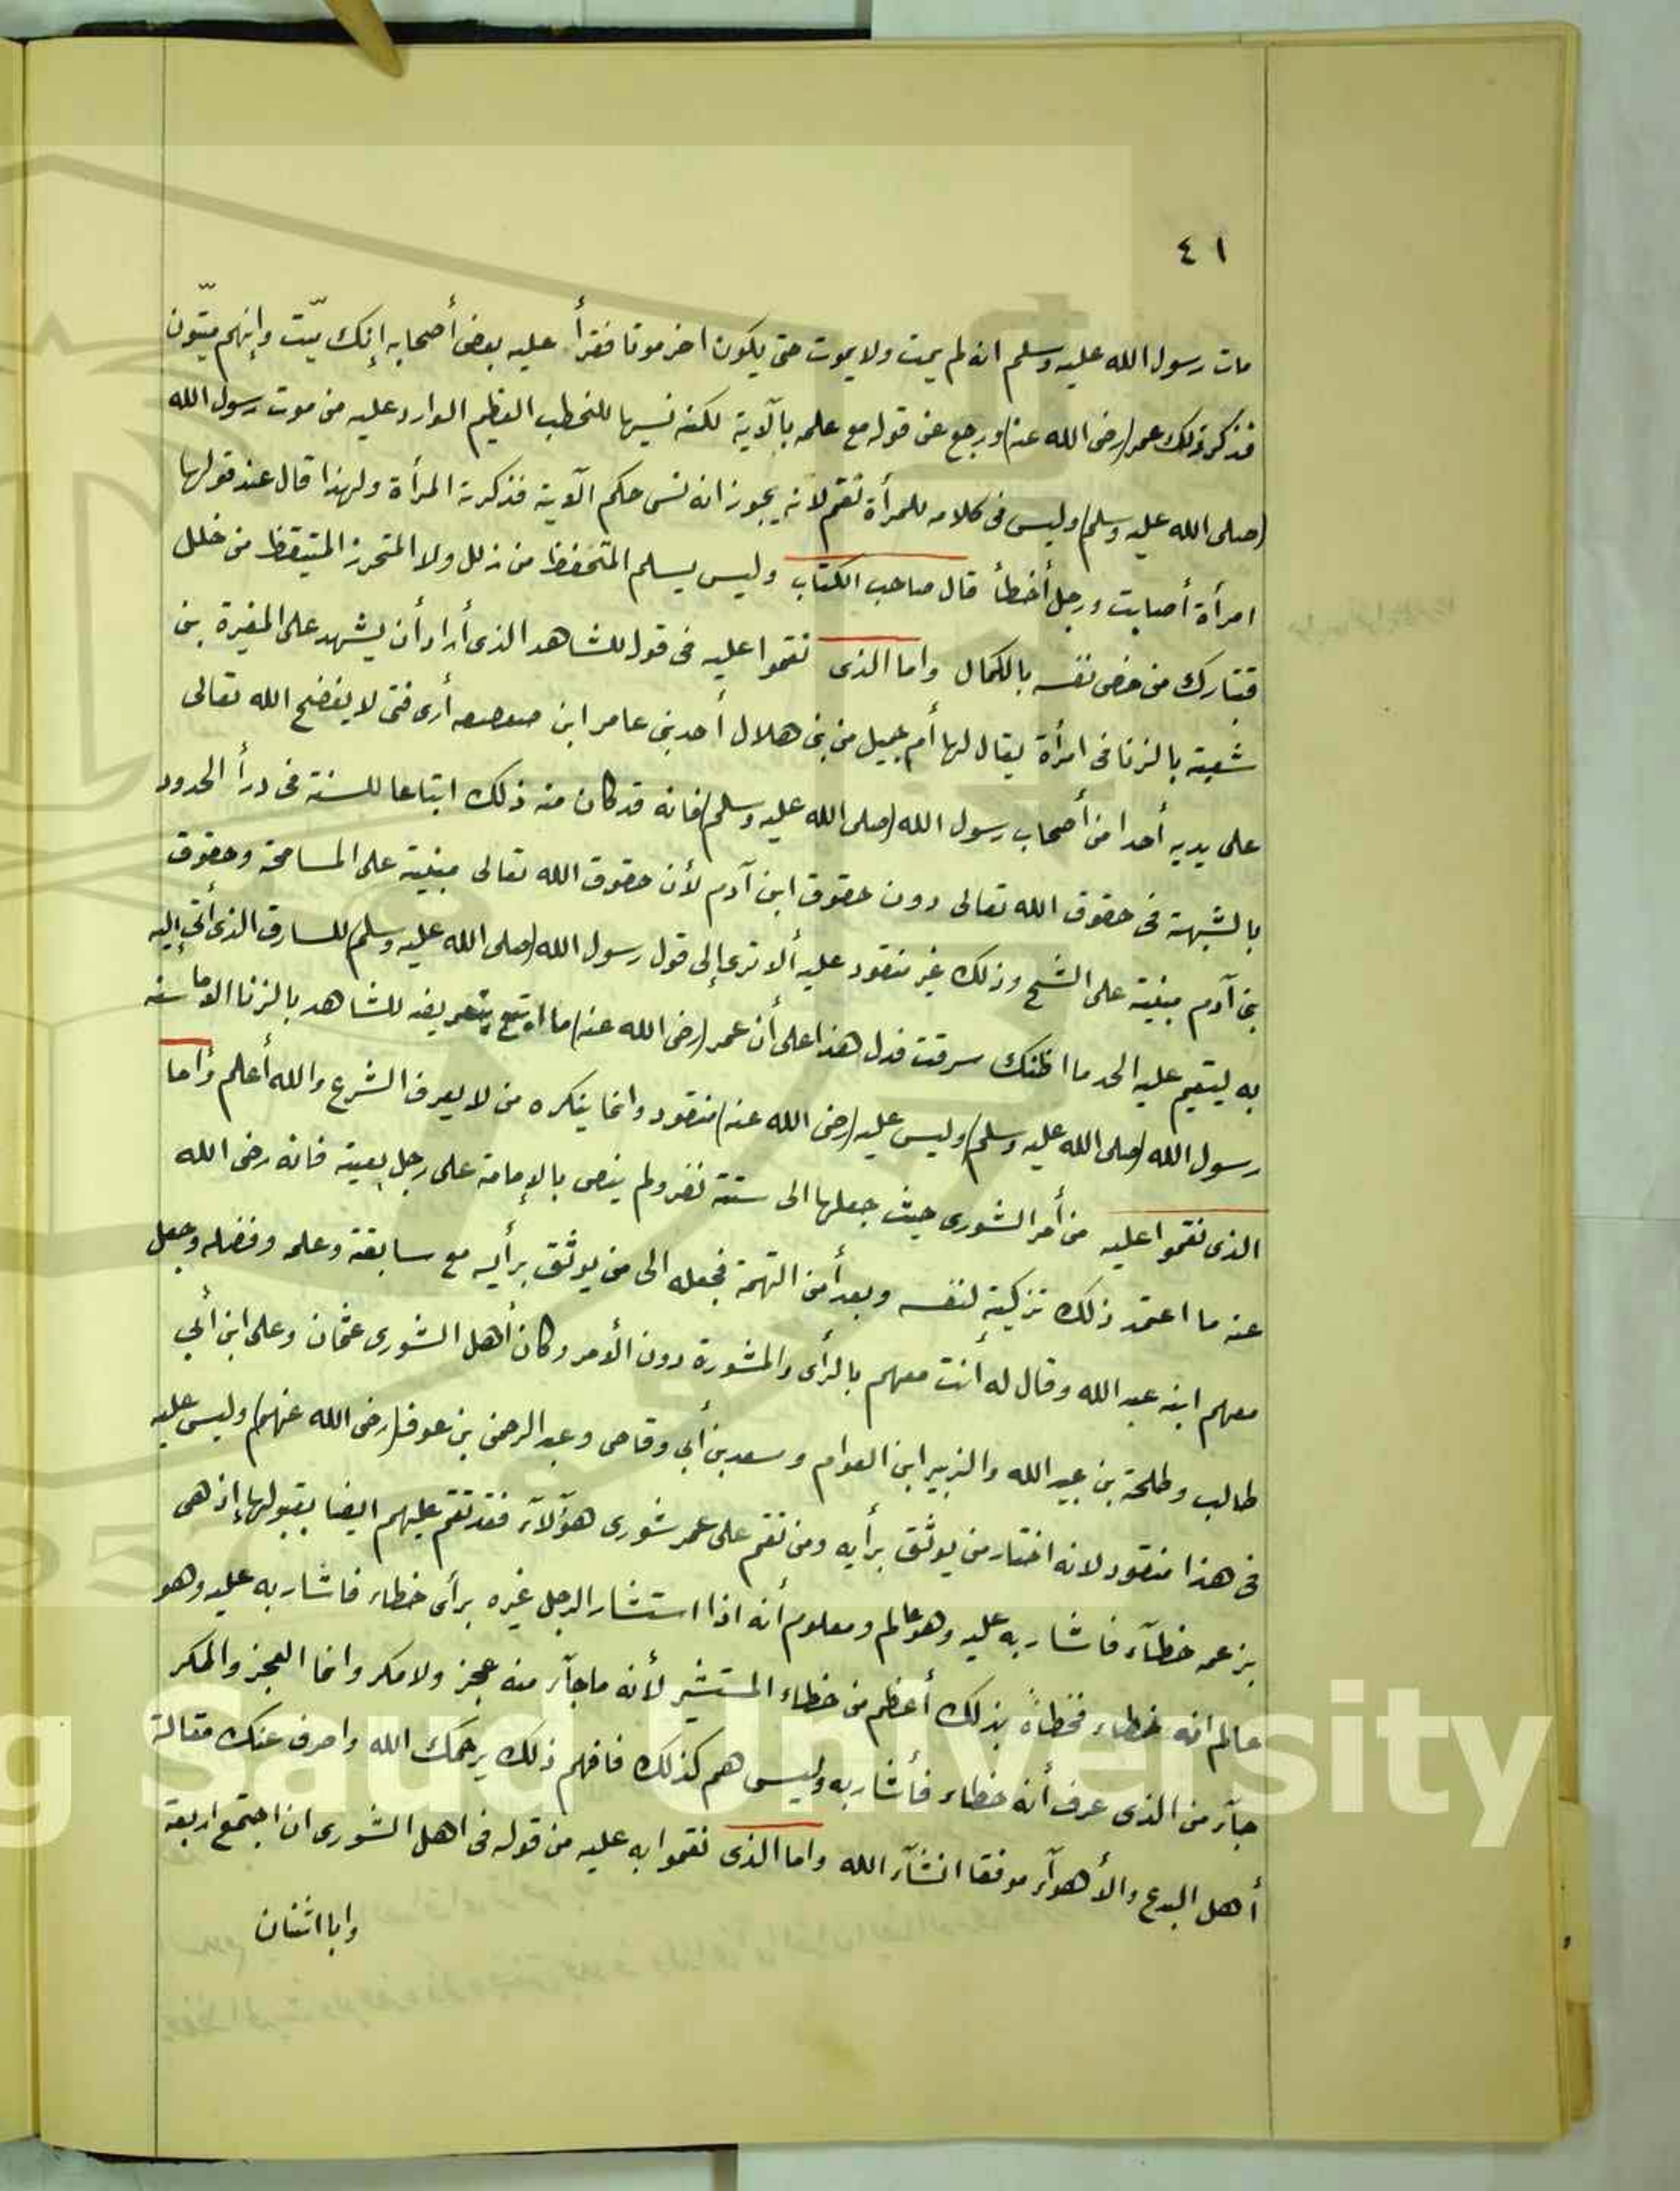 ٤١
مات رسول الله عليه وسلم انه لم يمت ولا يموت حتى يكون اخرموتا فقرأ عليه بعض أصحابه إنك ميّت وإنهم ميّتون
فذكر ذلك عمر (رضى الله عنه) ورجع عن قوله مع علمه بالآية لكنه نسيها للخطب العظيم الوارد عليه من موت رسول الله
(صلى الله عليه وسلم) وليس فى كلامه للمرأة نقم لأنه يجوز انه نسى حكم الآية فذكرته المرأة ولهذا قال عند قولها
امرأة أصابت ورجل أخطأ قال صاحب الكتاب وليس يسلم المتحفظ من زلل ولا المتحرز المتيقظ من خلل
فتبارك من خص نفسه بالكمال واما الذى نقموا عليه فى قوله للشاهد الذى أراد أن يشهد على المغيرة بن
شعبة بالزنا فى امرأة يقال لها أم جميل من بنى هلال أحد بنى عامر ابن صعصعه أرى فتى لا يفضح الله تعالى
على يديه أحدا من أصحاب رسول الله (صلى الله عليه وسلم) فانه قد كان منه ذلك اتباعا للسنة فى درأ الحدود
بالشبهة فى حقوق الله تعالى دون حقوق ابن آدم لأن حقوق الله تعالى مبنية على المسامحة وحقوق
بنى آدم مبنية على الشح وذلك غير منقود عليه ألا ترى إلى قول رسول الله (صلى الله عليه وسلم) للسارق الذى أتى إليه
به ليقيم عليه الحد ما اظنك سرقت فدل هذا على أن عمر (رضى الله عنه) ما اوقع بتعريضه للشاهد بالزنا الا ما سنه
رسول الله (صلى الله عليه وسلم) وليس عليه (رضى الله عنه) منقود وانما ينكره من لا يعرف الشرع والله أعلم وأما
الذى نقموا عليه من أمر الشورى حيث جعلها الى ستة نفر ولم ينص بالإمامة على رجل بعينه فانه رضى الله
عنه ما اعتمد ذلك تزكية لنفسه وبعداً من التهمة فجعله الى من يوثق برأيه مع سابقته وعلمه وفضله وجعل
معهم ابنه عبد الله وقال له أنت معهم بالرأى والمشورة دون الأمر وكان أهل الشورى عثمان وعلى ابن أبي
طالب وطلحة بن عبيد الله والزبير ابن العوام وسعد بن أبي وقاص وعبد الرحمن بن عوف (رضى الله عنهم) وليس عليه
فى هذا منقود لانه اختار من يوثق برأيه ومن نقم على عمر شورى هؤلآء فقد نقم عليهم ايضا بقبولها إذ هى
بزعمه خطآء فاشار به عليه وهو عالم ومعلوم أنه اذا استشار الرجل غيره برأى خطاء فاشار به عليه وهو
عالم انه خطاء فخطاؤه بذلك أعظم من خطاء المستشير لأنه ما جآء منه عجز ولا مكر وانما العجز والمكر
جآء من الذى عرف أنه خطاء فأشار به وليس هم كذلك فافهم ذلك يرحمك الله واصرف عنك مقالة
أهل البدع والأهوآء موفقا انشآء الله واما الذى نقموا به عليه من قوله فى اهل الشورى ان اجتمع اربعة
وابا اثنان
King Saud University